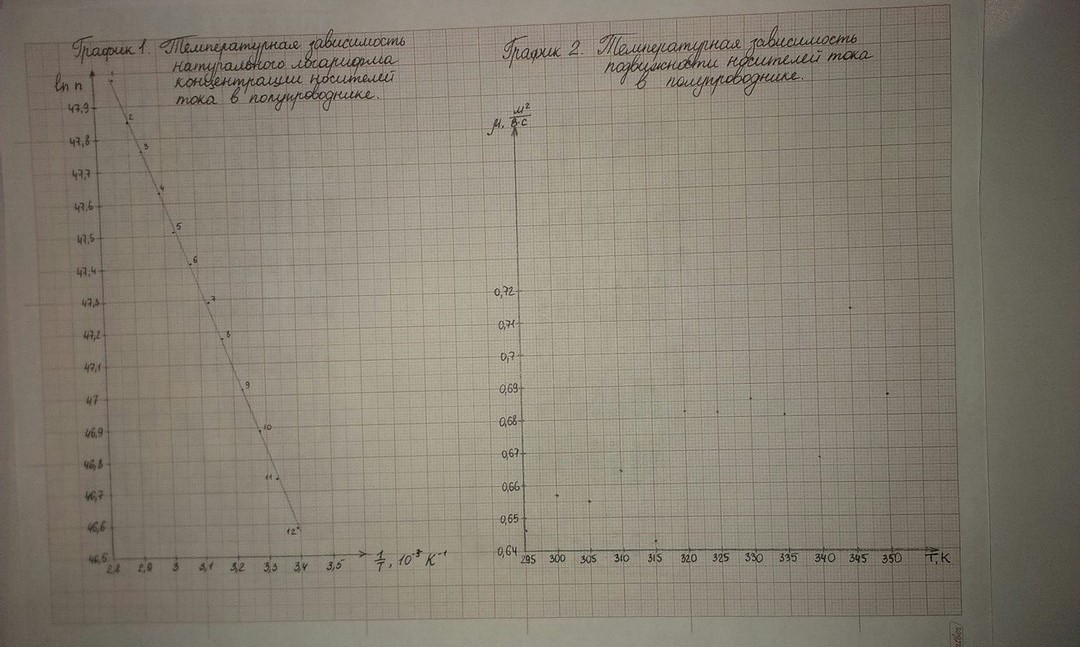 График 1. Температурная зависимость
натурального логарифма
концентрации носителей
тока в полупроводнике.
ln n
1
2
3
4
5
6
7
8
9
10
11
12
47,9
47,8
47,7
47,6
47,5
47,4
47,3
47,2
47,1
47
46,9
46,8
46,7
46,6
46,5
2,8 2,9 3 3,1 3,2 3,3 3,4 3,5
1/T, 10⁻³ К⁻¹
График 2. Температурная зависимость
подвижности носителей тока
в полупроводнике.
μ, м²/В·с
0,72
0,71
0,7
0,69
0,68
0,67
0,66
0,65
0,64
295 300 305 310 315 320 325 330 335 340 345 350 T, К